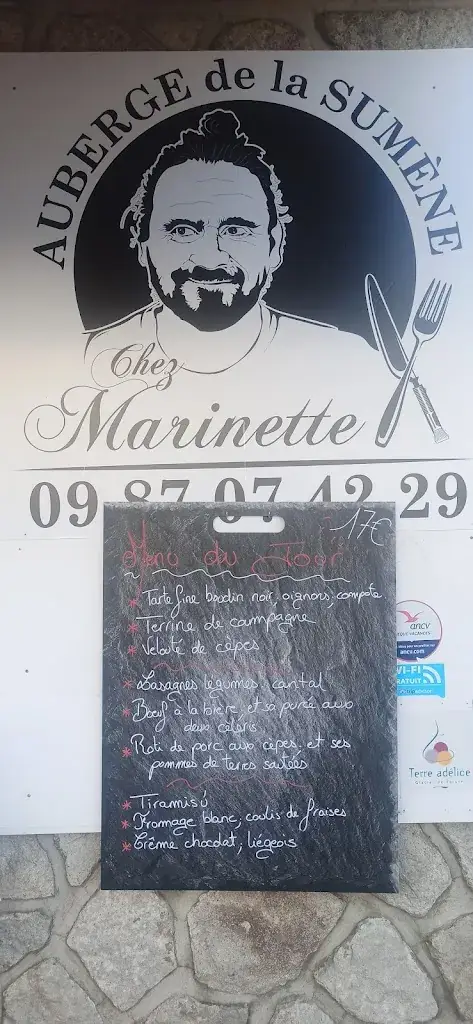 AUBERGE de la SUMÈNE
Chez
Marinette
09 87 07 42 29
17€
Menu du Jour
* Tarte fine boudin noir, oignons, compote
* Terrine de campagne
* Velouté de cèpes
* Lasagnes légumes, cantal
* Boeuf à la bière, et sa purée aux
deux céleris
* Roti de porc aux cèpes, et ses
pommes de terres sautées
* Tiramisú
* Fromage blanc, coulis de fraises
* Crème chocolat, liégeois
ancv
ancv.com
WI-FI
GRATUIT
Terre adélice